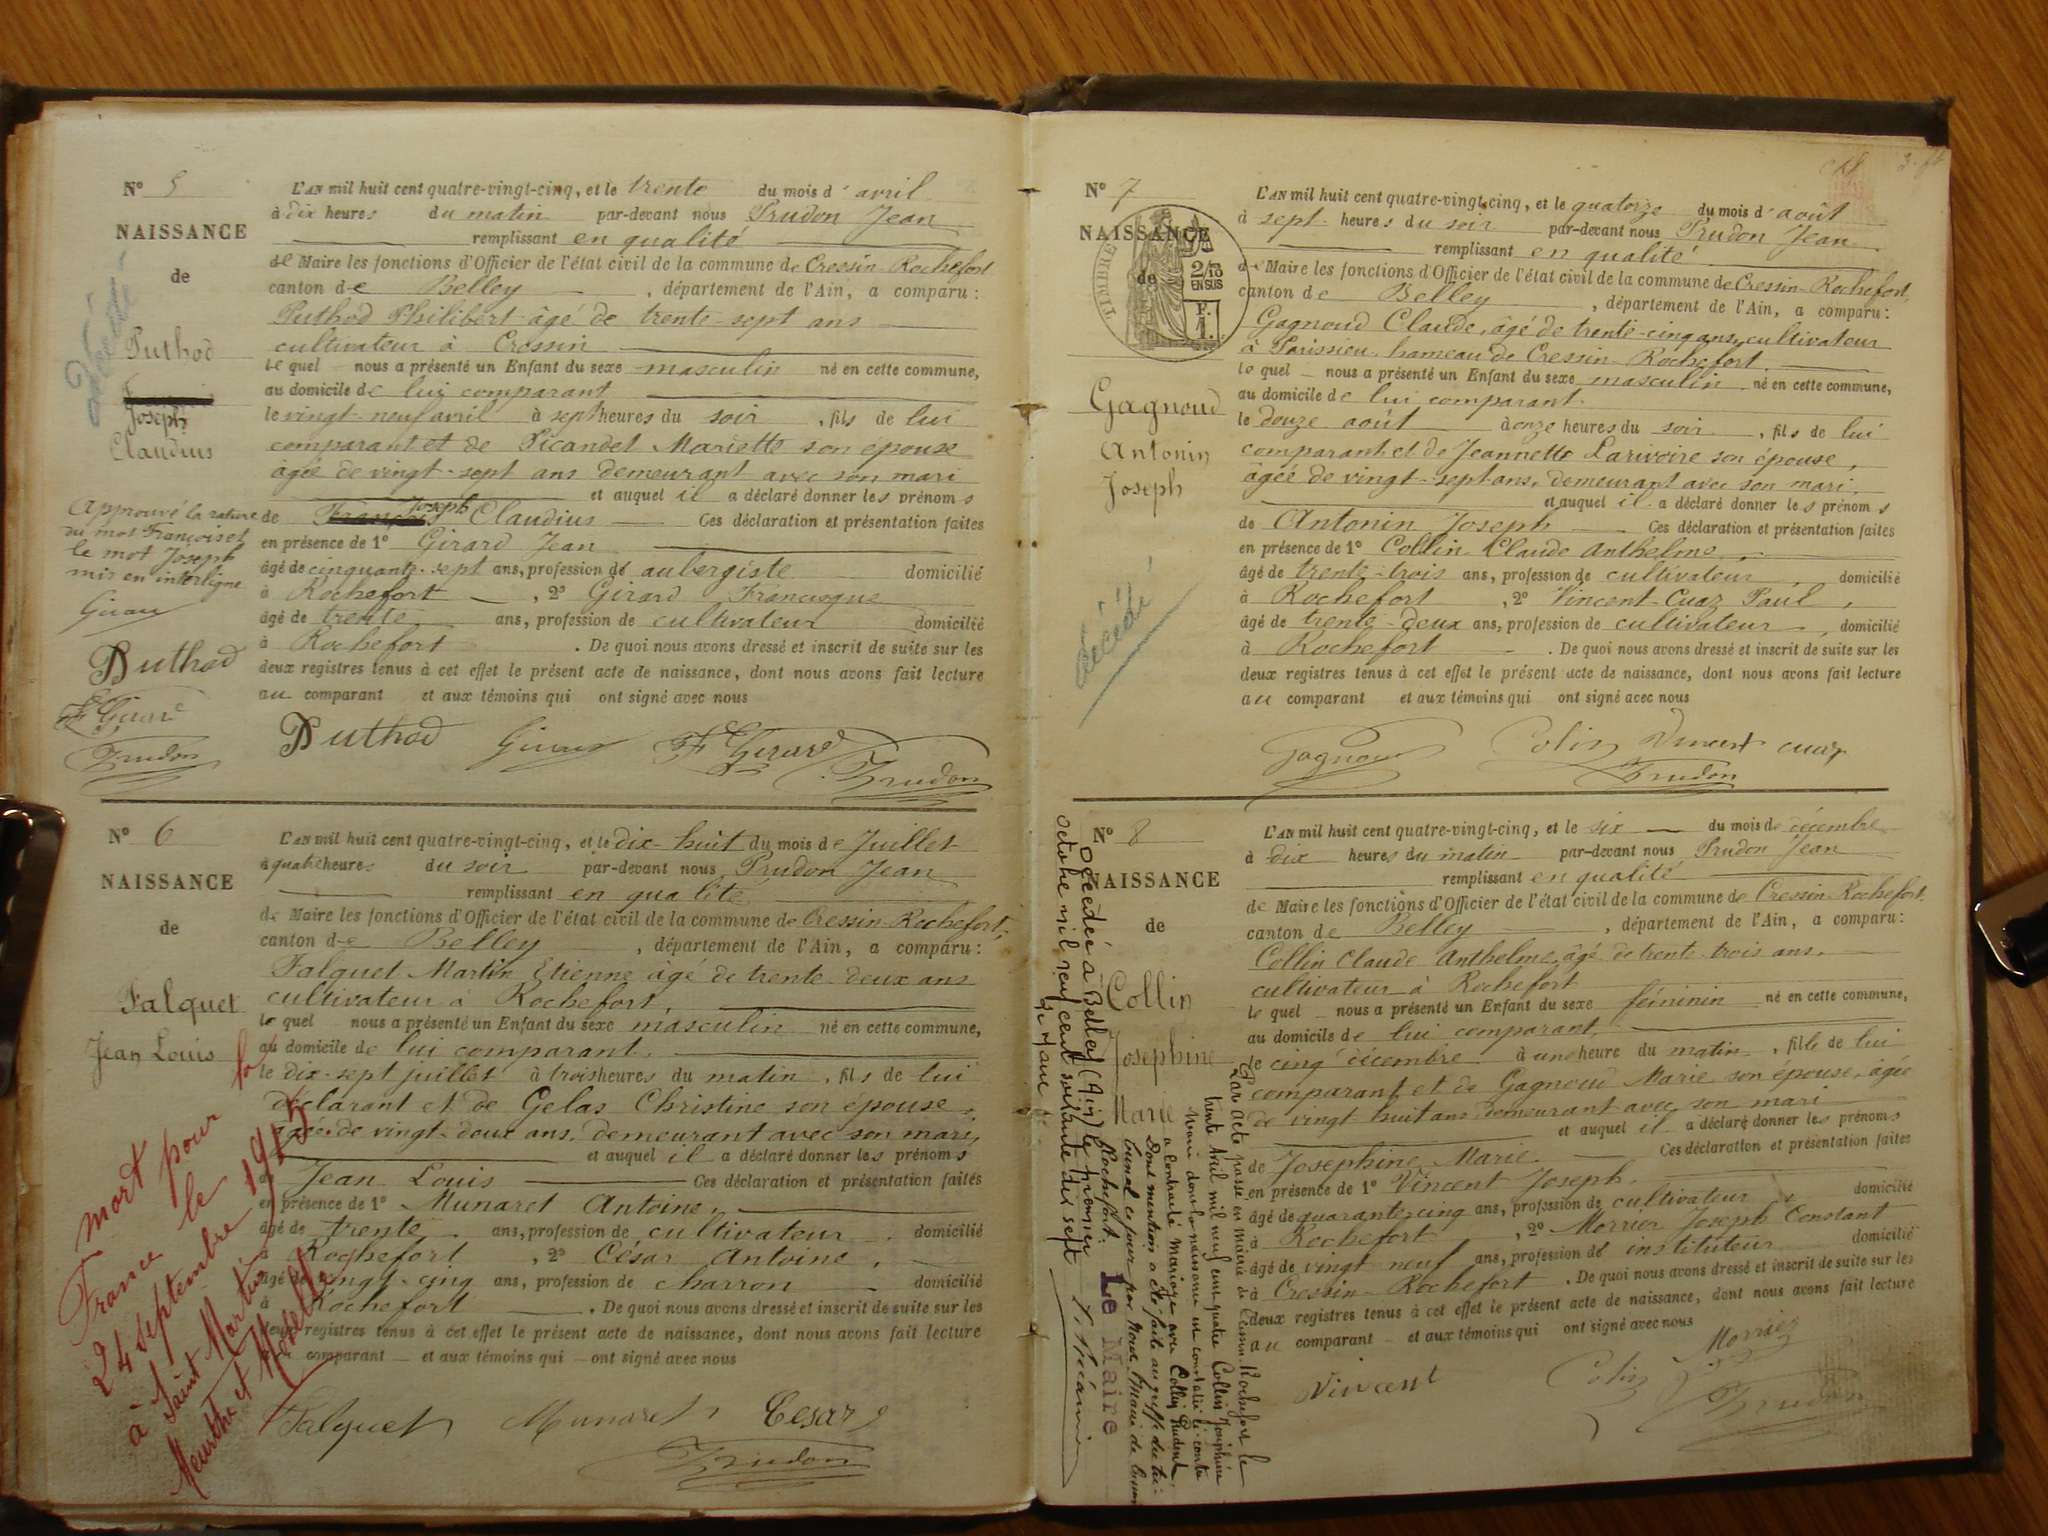 N° 5
NAISSANCE
de
Puthod
Joseph
Claudius
Approuvé la rature
du mot François et
le mot Joseph
mis en interligne
Puthod
F Girard
Prudon
L'AN mil huit cent quatre-vingt-cinq, et le trente du mois d'avril
à dix heures du matin par-devant nous Prudon Jean
remplissant en qualité
de Maire les fonctions d'Officier de l'état civil de la commune de Cressin-Rochefort
canton de Belley, département de l'Ain, a comparu :
Puthod Philibert âgé de trente-sept ans
cultivateur à Cressin
lequel nous a présenté un Enfant du sexe masculin né en cette commune,
au domicile de lui comparant
le vingt-neuf avril à sept heures du soir, fils de lui
comparant et de Picandet Mariette son épouse
âgée de vingt-sept ans demeurant avec son mari
et auquel il a déclaré donner les prénoms
de François Joseph Claudius Ces déclaration et présentation faites
en présence de 1° Girard Jean
âgé de cinquante-sept ans, profession de aubergiste domicilié
à Rochefort, 2° Girard Francisque
âgé de trente ans, profession de cultivateur domicilié
à Rochefort. De quoi nous avons dressé et inscrit de suite sur les
deux registres tenus à cet effet le présent acte de naissance, dont nous avons fait lecture
au comparant et aux témoins qui ont signé avec nous
Puthod Girard F Girard
Prudon
N° 6
NAISSANCE
de
Falquet
Jean Louis
mort pour la
France le
24 Septembre 1915
à Saint Martin
Meurthe et Moselle
L'AN mil huit cent quatre-vingt-cinq, et le dix-huit du mois de Juillet
à quatre heures du soir par-devant nous Prudon Jean
remplissant en qualité
de Maire les fonctions d'Officier de l'état civil de la commune de Cressin-Rochefort,
canton de Belley, département de l'Ain, a comparu :
Falquet Martin Etienne âgé de trente-deux ans
cultivateur à Rochefort,
lequel nous a présenté un Enfant du sexe masculin né en cette commune,
au domicile de lui comparant.
le dix-sept juillet à trois heures du matin, fils de lui
déclarant et de Gelas Christine son épouse,
âgée de vingt-deux ans, demeurant avec son mari,
et auquel il a déclaré donner les prénoms
de Jean Louis Ces déclaration et présentation faites
en présence de 1° Munaret Antoine,
âgé de trente ans, profession de cultivateur, domicilié
à Rochefort, 2° César Antoine,
âgé de vingt-cinq ans, profession de charron domicilié
à Rochefort. De quoi nous avons dressé et inscrit de suite sur les
deux registres tenus à cet effet le présent acte de naissance, dont nous avons fait lecture
comparant et aux témoins qui ont signé avec nous
Falquet Munaret Cesar
Prudon
N° 7
NAISSANCE
de
2/10
EN SUS
Gagnoud
Antonin
Joseph
décédé
L'AN mil huit cent quatre-vingt-cinq, et le quatorze du mois d'août
à sept heures du soir par-devant nous Prudon Jean
remplissant en qualité
de Maire les fonctions d'Officier de l'état civil de la commune de Cressin-Rochefort,
canton de Belley, département de l'Ain, a comparu :
Gagnoud Claude, âgé de trente-cinq ans, cultivateur
à Parissieu hameau de Cressin-Rochefort.
lequel nous a présenté un Enfant du sexe masculin né en cette commune,
au domicile de lui comparant.
le douze août à onze heures du soir, fils de lui
comparant et de Jeannette Larivoire son épouse,
âgée de vingt-sept ans, demeurant avec son mari.
et auquel il a déclaré donner les prénoms
de Antonin Joseph Ces déclaration et présentation faites
en présence de 1° Collin Claude Anthelme,
âgé de trente-trois ans, profession de cultivateur, domicilié
à Rochefort, 2° Vincent-Cuaz Paul,
âgé de trente-deux ans, profession de cultivateur, domicilié
à Rochefort. De quoi nous avons dressé et inscrit de suite sur les
deux registres tenus à cet effet le présent acte de naissance, dont nous avons fait lecture
au comparant et aux témoins qui ont signé avec nous
Gagnoud Colin Vincent cuaz
Prudon
N° 8
NAISSANCE
de
Collin
Josephine
Marie
Décédée à Belley (Ain) le premier
octobre mil neuf cent soixante dix sept
Le Maire
Par acte passé en mairie de Cressin-Rochefort le
trente Avril mil neuf cent quatre Collin Joséphine
Marie dont la naissance est constatée ci-contre
a contracté mariage avec Collin Prudent
Dont mention a été faite au greffe du tri-
bunal ce jour par Nous, Maire de Cressin
Rochefort.
Le Maire
L'AN mil huit cent quatre-vingt-cinq, et le six du mois de décembre
à dix heures du matin par-devant nous Prudon Jean
remplissant en qualité
de Maire les fonctions d'Officier de l'état civil de la commune de Cressin-Rochefort,
canton de Belley, département de l'Ain, a comparu :
Collin Claude Anthelme, âgé de trente-trois ans,
cultivateur à Rochefort
lequel nous a présenté un Enfant du sexe féminin né en cette commune,
au domicile de lui comparant,
le cinq décembre à une heure du matin, fille de lui
comparant et de Gagnoud Marie son épouse, âgée
de vingt huit ans demeurant avec son mari
et auquel il a déclaré donner les prénoms
de Josephine Marie. Ces déclaration et présentation faites
en présence de 1° Vincent Joseph,
âgé de quarante-cinq ans, profession de cultivateur, domicilié
à Rochefort, 2° Morrier Joseph Constant
âgé de vingt neuf ans, profession de instituteur domicilié
à Cressin-Rochefort. De quoi nous avons dressé et inscrit de suite sur les
deux registres tenus à cet effet le présent acte de naissance, dont nous avons fait lecture
au comparant et aux témoins qui ont signé avec nous
Vincent Colin Morrier
Prudon